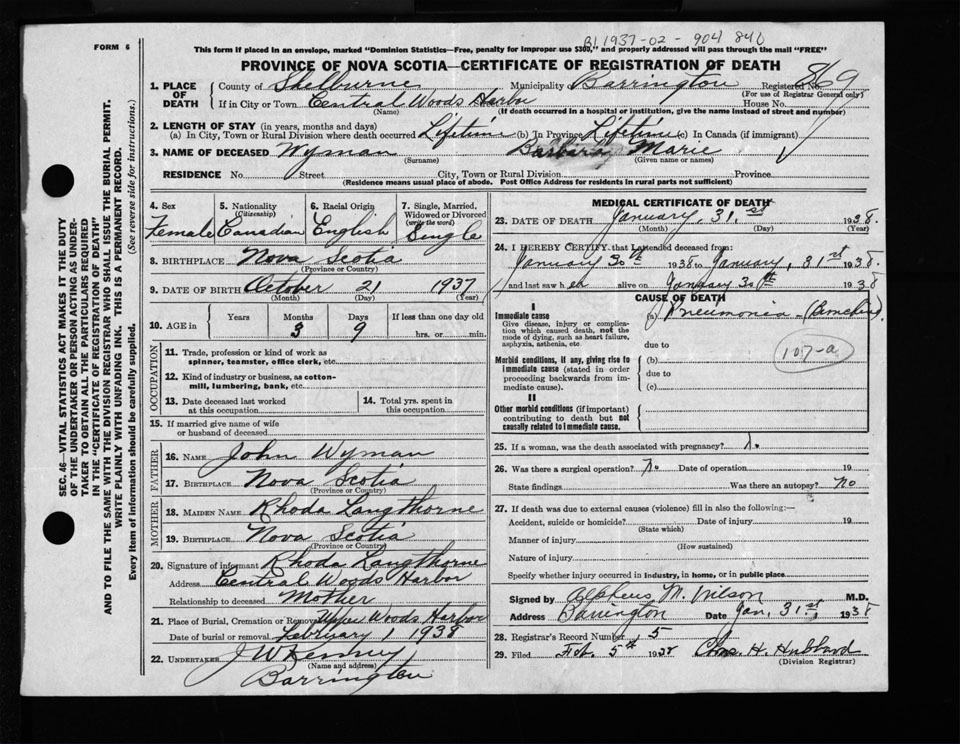 FORM 6
B1 1937-02-904 840
This form if placed in an envelope, marked "Dominion Statistics—Free, penalty for improper use $300," and properly addressed will pass through the mail "FREE"
PROVINCE OF NOVA SCOTIA—CERTIFICATE OF REGISTRATION OF DEATH
1. PLACE OF DEATH County of Shelburne Municipality Barrington Registered No. 869
(For use of Registrar General only)
If in City or Town Central Woods Harbor Street House No.
(Name) (If death occurred in a hospital or institution, give the name instead of street and number)
2. LENGTH OF STAY (in years, months and days)
(a) In City, Town or Rural Division where death occurred Lifetime (b) In Province Lifetime (c) In Canada (if immigrant)
3. NAME OF DECEASED Wyman Barbara Marie
(Surname) (Given name or names)
RESIDENCE No. Street City, Town or Rural Division Province
(Residence means usual place of abode. Post Office Address for residents in rural parts not sufficient)
4. Sex Female
5. Nationality (Citizenship) Canadian
6. Racial Origin English
7. Single, Married, Widowed or Divorced (write the word) Single
8. BIRTHPLACE Nova Scotia
(Province or Country)
9. DATE OF BIRTH October 21 1937
(Month) (Day) (Year)
10. AGE in Years Months 3 Days 9 If less than one day old hrs. or min.
OCCUPATION
11. Trade, profession or kind of work as spinner, teamster, office clerk, etc.
12. Kind of industry or business, as cotton-mill, lumbering, bank, etc.
13. Date deceased last worked at this occupation
14. Total yrs. spent in this occupation
15. If married give name of wife or husband of deceased
FATHER
16. NAME John Wyman
17. BIRTHPLACE Nova Scotia
(Province or Country)
MOTHER
18. MAIDEN NAME Rhoda Langthorne
19. BIRTHPLACE Nova Scotia
(Province or Country)
20. Signature of informant Rhoda Langthorne
Address Central Woods Harbor
Relationship to deceased Mother
21. Place of Burial, Cremation or Removal Upper Woods Harbor
Date of burial or removal February 1 1938
22. UNDERTAKER J W Kenney
(Name and address)
Barrington
MEDICAL CERTIFICATE OF DEATH
23. DATE OF DEATH January, 31.st 1938.
(Month) (Day) (Year)
24. I HEREBY CERTIFY that I attended deceased from:
January 30th 1938 to January, 31st 1938
and last saw her alive on January 30th 1938
CAUSE OF DEATH
I
Immediate cause
Give disease, injury or complication which caused death, not the mode of dying, such as heart failure, asphyxia, asthenia, etc.
(a) Pneumonia - (Bronchial)
107-a
due to
Morbid conditions, if any, giving rise to immediate cause (stated in order proceeding backwards from immediate cause).
(b)
due to
(c)
II
Other morbid conditions (if important) contributing to death but not causally related to immediate cause.
25. If a woman, was the death associated with pregnancy? No
26. Was there a surgical operation? No Date of operation 19
State findings Was there an autopsy? No
27. If death was due to external causes (violence) fill in also the following:—
Accident, suicide or homicide? Date of injury 19
(State which)
Manner of injury
(How sustained)
Nature of injury
Specify whether injury occurred in industry, in home, or in public place
Signed by Alpheus M. Wilson M.D.
Address Barrington Date Jan, 31st 1938
28. Registrar's Record Number 5
29. Filed Feb. 5th 1938 Chas. H. Hubbard
(Division Registrar)
SEC. 46—VITAL STATISTICS ACT MAKES IT THE DUTY
OF THE UNDERTAKER OR PERSON ACTING AS UNDER-
TAKER TO OBTAIN ALL THE PARTICULARS REQUIRED
IN THE "CERTIFICATE OF REGISTRATION OF DEATH"
AND TO FILE THE SAME WITH THE DIVISION REGISTRAR WHO SHALL ISSUE THE BURIAL PERMIT.
WRITE PLAINLY WITH UNFADING INK. THIS IS A PERMANENT RECORD.
Every item of information should be carefully supplied. (See reverse side for instructions.)